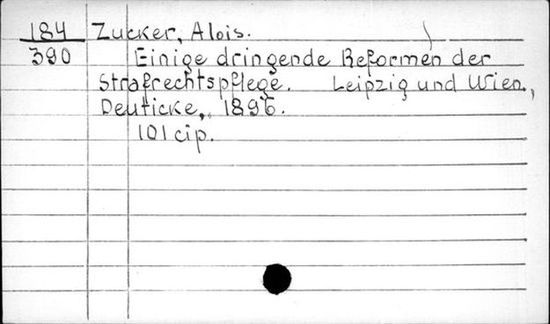 184 Zucker, Alois.
390 Einige dringende Reformen der
Strafrechtspflege. Leipzig und Wien,
Deuticke, 1896.
101 cip.